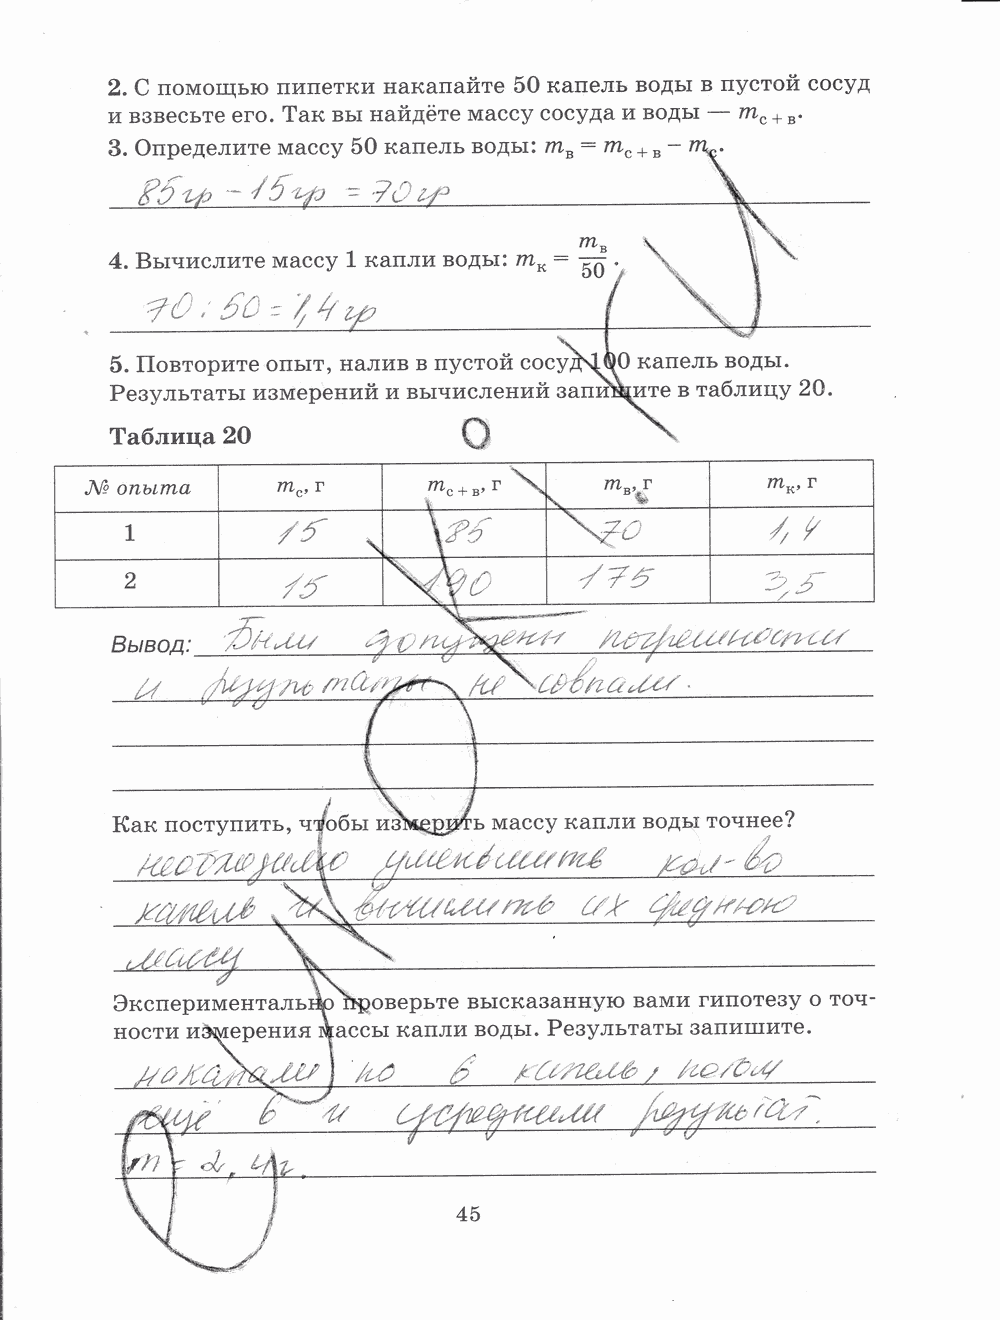 2. С помощью пипетки накапайте 50 капель воды в пустой сосуд
и взвесьте его. Так вы найдёте массу сосуда и воды — mс + в.
3. Определите массу 50 капель воды: mв = mс + в – mс.
85гр – 15гр = 70гр
4. Вычислите массу 1 капли воды: mк = mв/50.
70 : 50 = 1,4 гр
5. Повторите опыт, налив в пустой сосуд 100 капель воды.
Результаты измерений и вычислений запишите в таблицу 20.
Таблица 20
№ опыта mс, г mс + в, г mв, г mк, г
1 15 85 70 1,4
2 15 190 175 3,5
Вывод: Были допущены погрешности
и результаты не совпали.
Как поступить, чтобы измерить массу капли воды точнее?
необходимо уменьшить кол-во
капель и вычислить их среднюю
массу
Экспериментально проверьте высказанную вами гипотезу о точ-
ности измерения массы капли воды. Результаты запишите.
накапали по 6 капель, потом
ещё 6 и усреднили результат.
m = 2,4г.
45